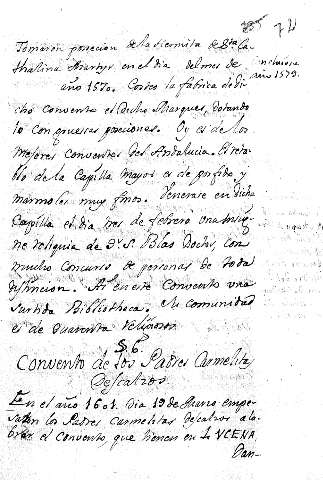 74
Tomaron posecion de la hermita de Sta. Ca-
thalina Martyr en el dia del mes de
año 1570. Costeo la fabrica de di-
cho convento el dicho Marques, dotando
lo con gruesas porciones. Oy es de los
mejores conventos del Andalucia. El reta-
blo de la Capilla mayor es de porfido y
marmoles muy finos. Venerase en dicha
Capilla el dia tres de febrero una insig-
ne reliquia de Sr. S. Blas Obispo, con
mucho concurso de personas de toda
distincion. Ai en este Convento una
surtida Bibliotheca. Su comunidad
es de quarenta religiosos
§. 6.
Convento de los Padres Carmelitas
Descalzos.
En el año 1601. Dia 19 de Marzo empe-
saron los Padres carmelitas descalzos a la-
brar el convento, que tienen en LUCENA.
Dan-
año 1579.